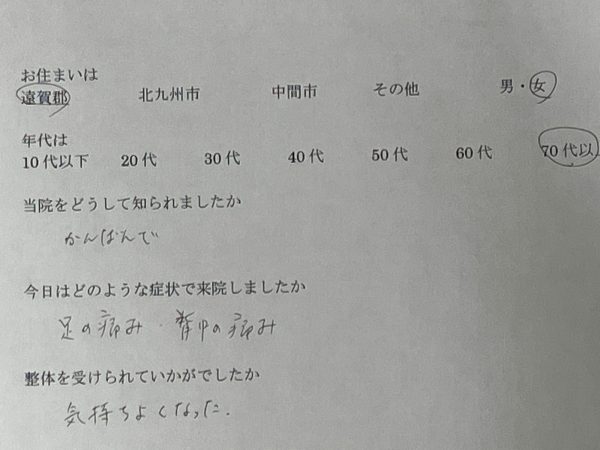 お住まいは
遠賀郡 北九州市 中間市 その他 男・女
年代は
10代以下 20代 30代 40代 50代 60代 70代以
当院をどうして知られましたか
かんばんで
今日はどのような症状で来院しましたか
足の痛み・背中の痛み
整体を受けられていかがでしたか
気持ちよくなった.